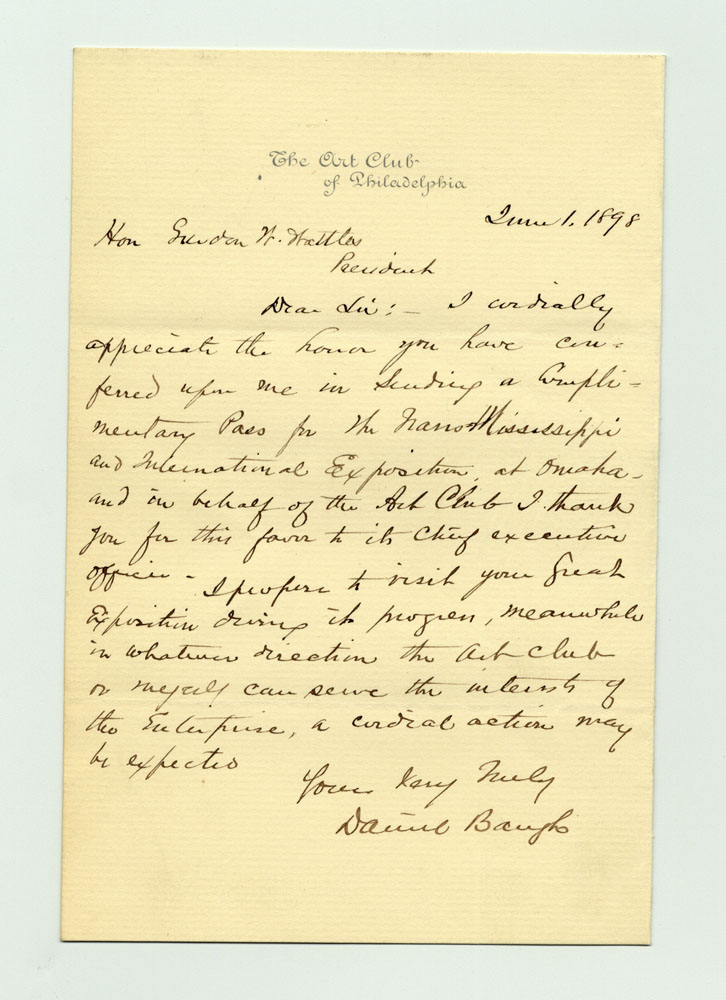 The Art Club
of Philadelphia
June 1. 1898
Hon Gurdon W. Wattles
President
Dear Sir: – I cordially
appreciate the honor you have con=
ferred upon me in sending a Compli=
mentary Pass for the Trans Mississippi
and International Exposition, at Omaha–
and in behalf of the Art Club I thank
you for this favor to its Chief executive
officer – I propose to visit your Great
Exposition during its progress, meanwhile
in whatever direction the Art Club
or myself can serve the interests of
the Enterprise, a cordial action may
be expected
Yours Very Truly
Daniel Baugh